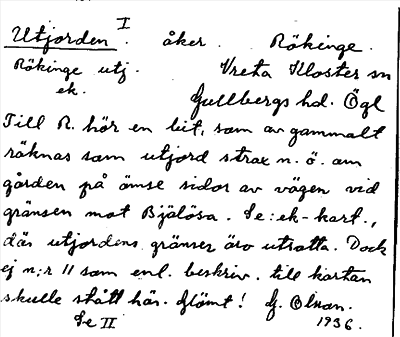 I
Utjorden. åker. Rökinge.
Rökinge utj. Vreta Kloster sn
ek. Gullbergs hd. Ögl
Till R. hör en bit, som av gammalt
räknas som utjord strax n. ö. om
gården på ömse sidor av vägen vid
gränsen mot Bjälösa. Se: ek-kart.,
där utjordens gränser äro utsatta. Dock
ej n:r 11 som enl. beskriv. till kartan
skulle stått här. Glömt! G. Olson.
Se II 1936.